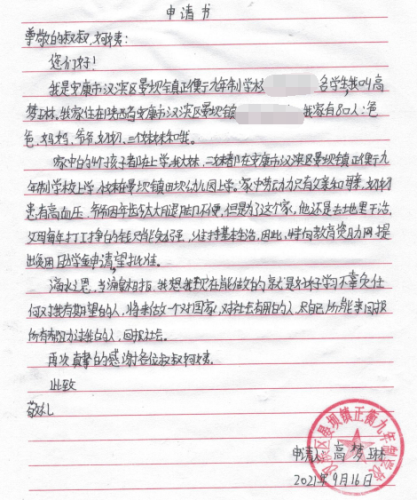 申请书
尊敬的叔叔、姨:
您们好!
我是安康市汉滨区晏坝镇正衡九年制学校 名学生,我叫高
梦琳,我家住在陕西省安康市汉滨区晏坝镇 我家有8口人:爸
爸、妈妈、爷爷、奶奶、三个妹妹和我。
家中的4个孩子都在上学,我和 妹都在安康市汉滨区晏坝镇正衡九
年制学校上学, 妹在晏坝镇田坝幼儿园上学。家中劳动力只有父亲和母亲,奶奶
患有高血压,爷爷因年龄太大,腿脚不便,但是为了这个家,他还是去地里干活,
父母每年打工挣的钱只能勉强 维持基本生活,因此,特向教育资助网提
出 助学金申请,望批准。
滴水之恩,当涌泉相报,我想我现在能做的就是好好学习,不辜负任
何对我有期望的人,将来做一个对国家,对社会有用的人,尽自己所能来回报
所有帮助过我的人,回报社会。
再次真挚的感谢各位叔叔阿姨。
此致
敬礼
申请人:高梦琳
2021年9月16日
汉滨区晏坝镇正衡九年制学校